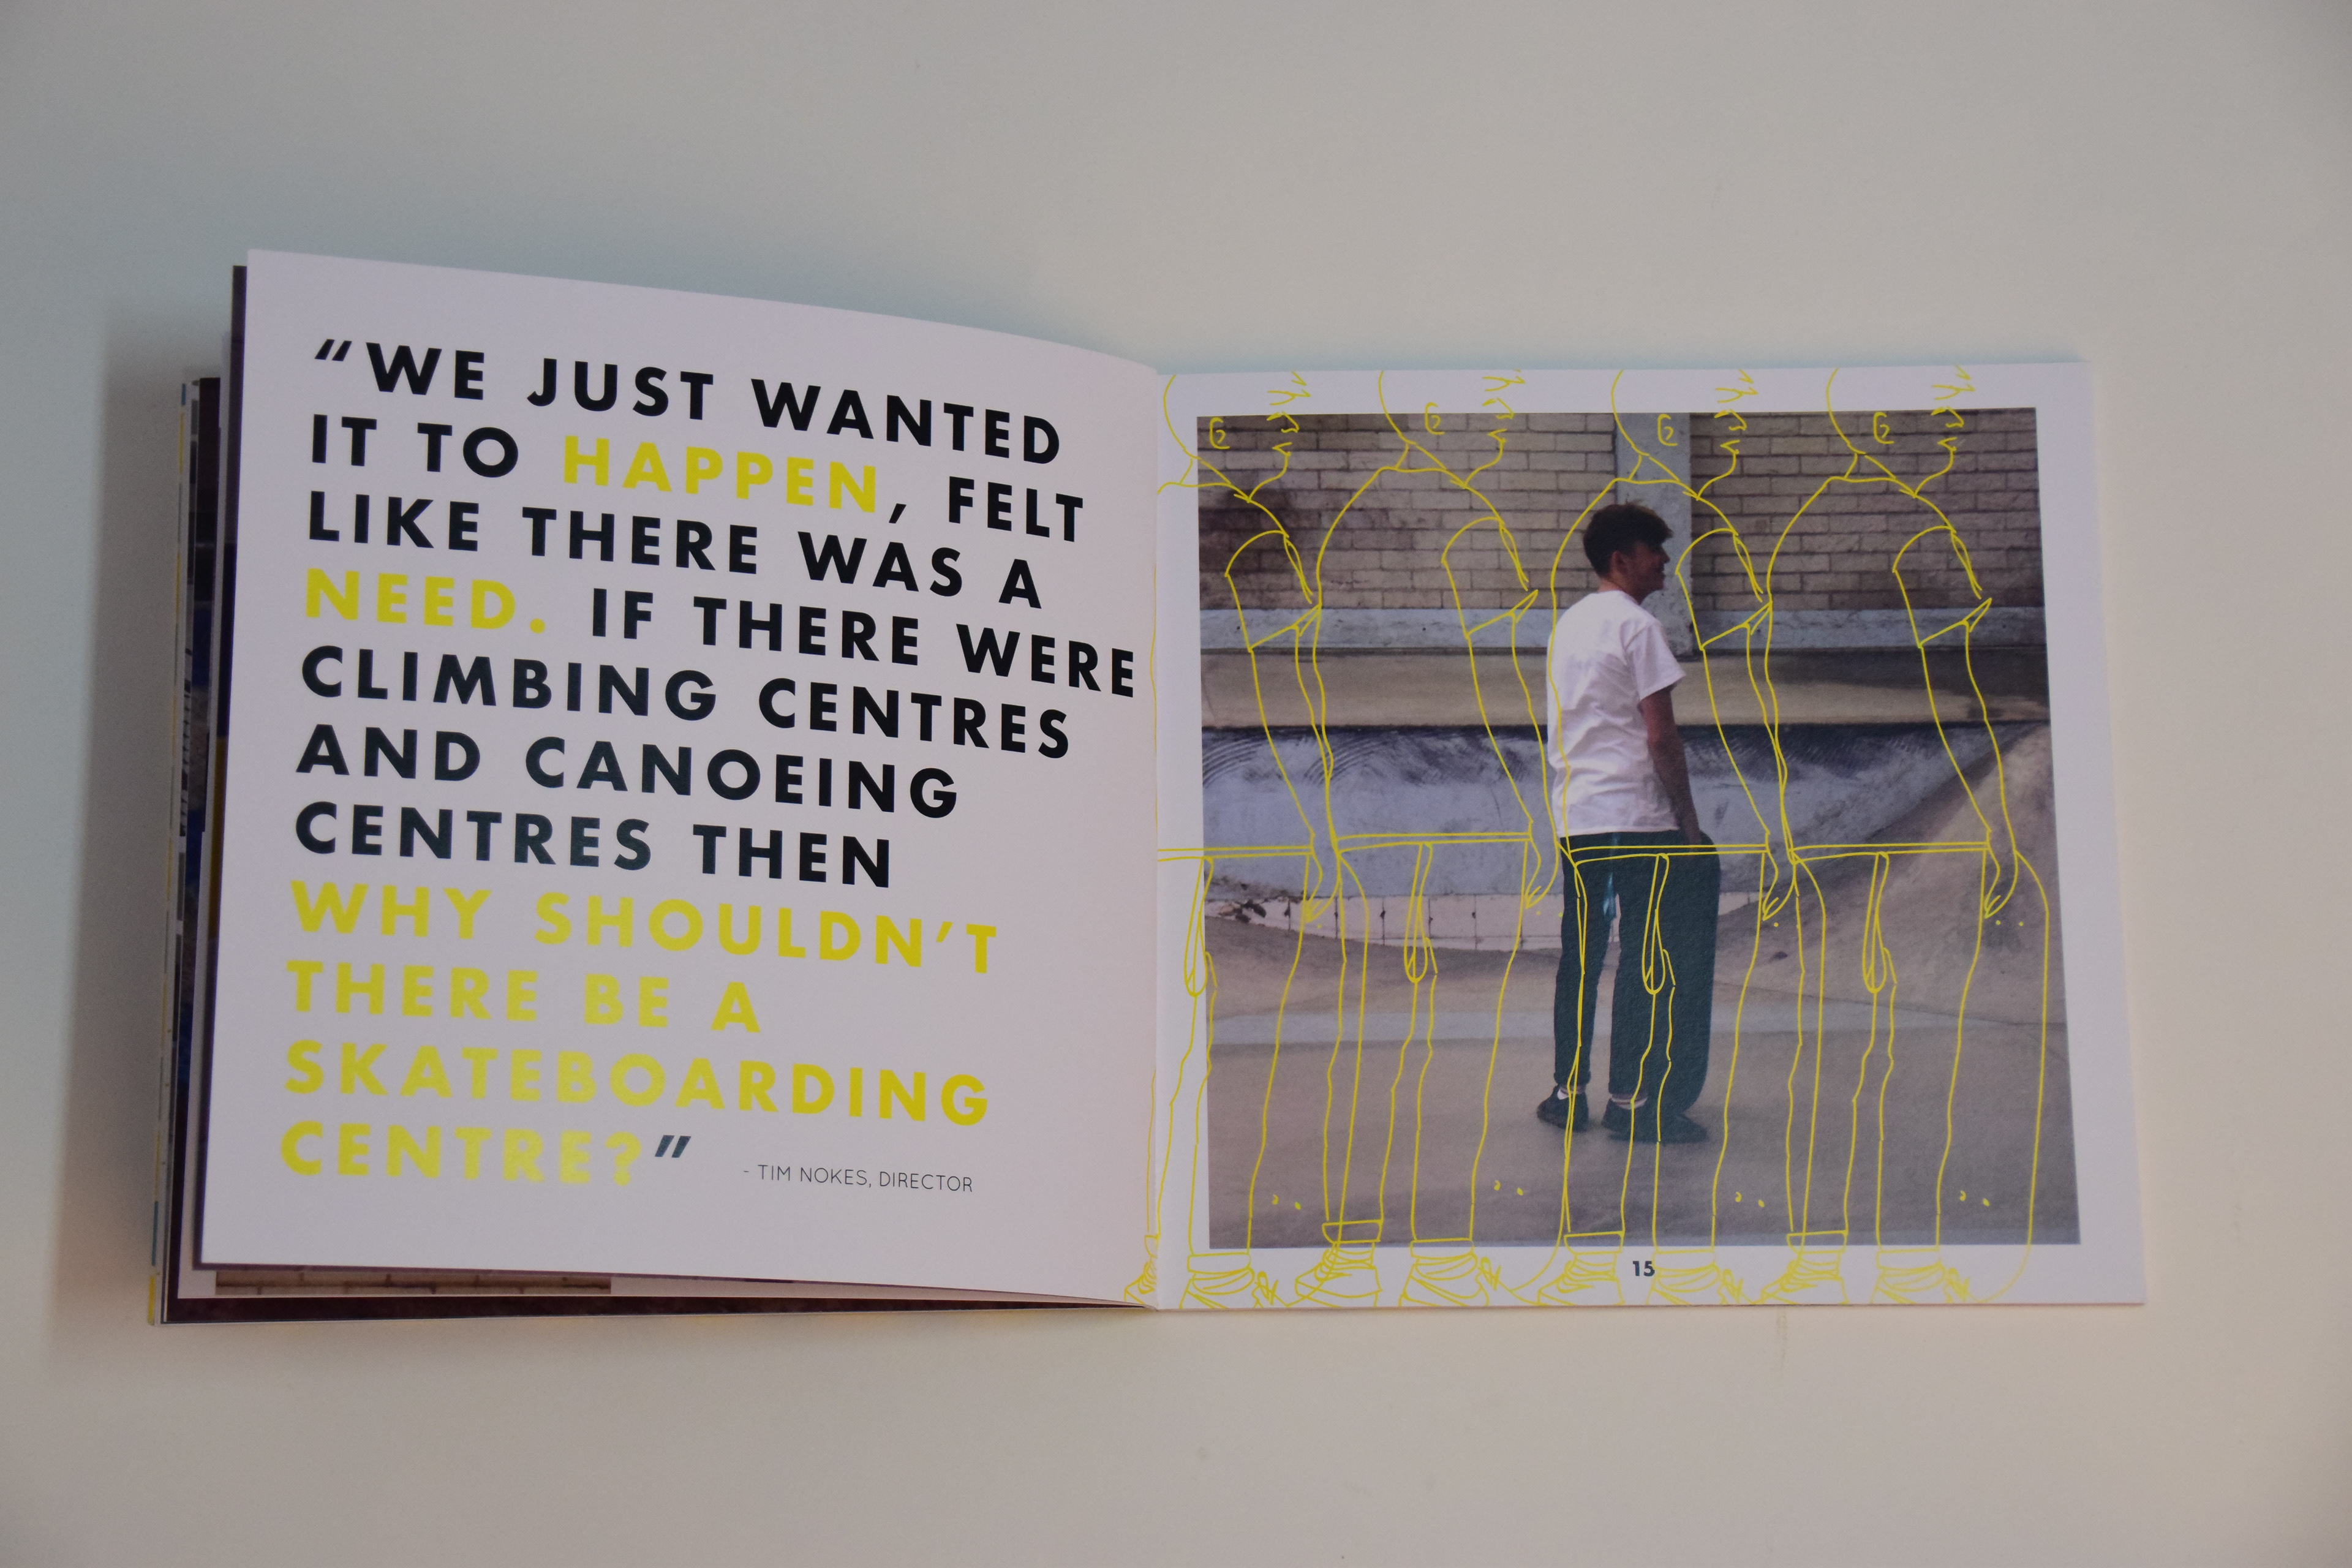 “WE JUST WANTED
IT TO HAPPEN, FELT
LIKE THERE WAS A
NEED. IF THERE WERE
CLIMBING CENTRES
AND CANOEING
CENTRES THEN
WHY SHOULDN’T
THERE BE A
SKATEBOARDING
CENTRE?”
- TIM NOKES, DIRECTOR
15